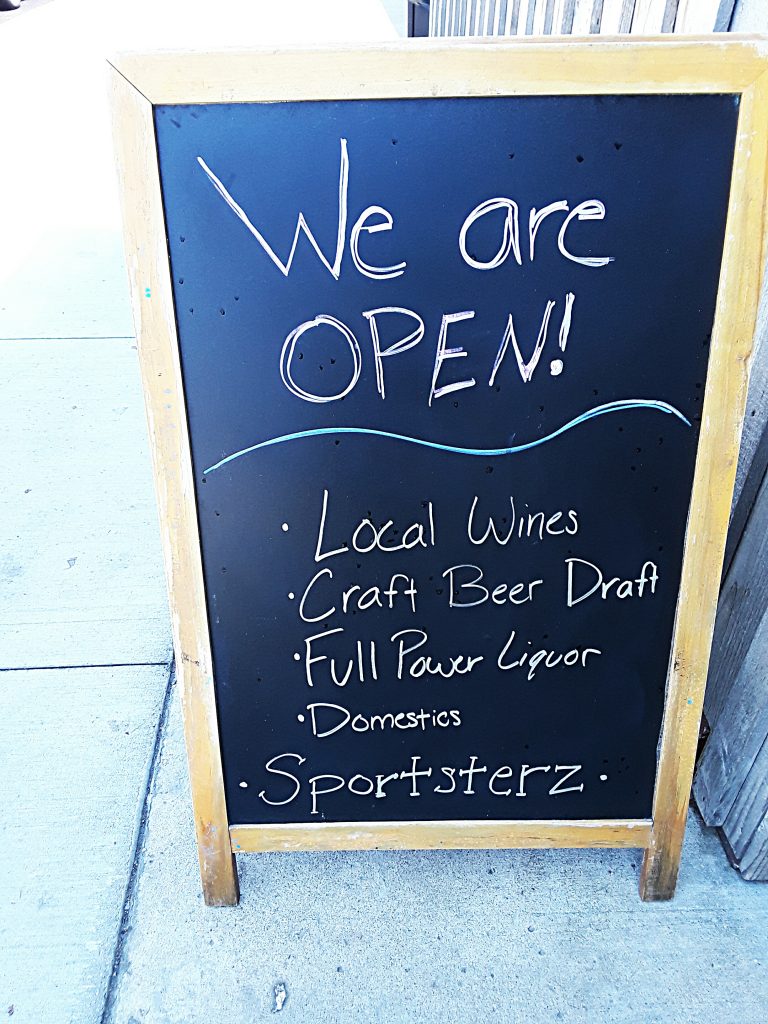 We are
OPEN!
· Local Wines
· Craft Beer Draft
· Full Power Liquor
· Domestics
· Sportsterz ·